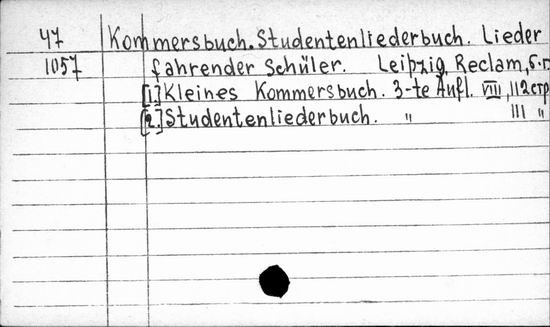 47 Kommersbuch. Studentenliederbuch. Lieder
1057 fahrender Schüler. Leipzig, Reclam, s.г.
[1.] Kleines Kommersbuch. 3-te Aufl. VIII, 112 стр
[2.] Studentenliederbuch. " 111 "